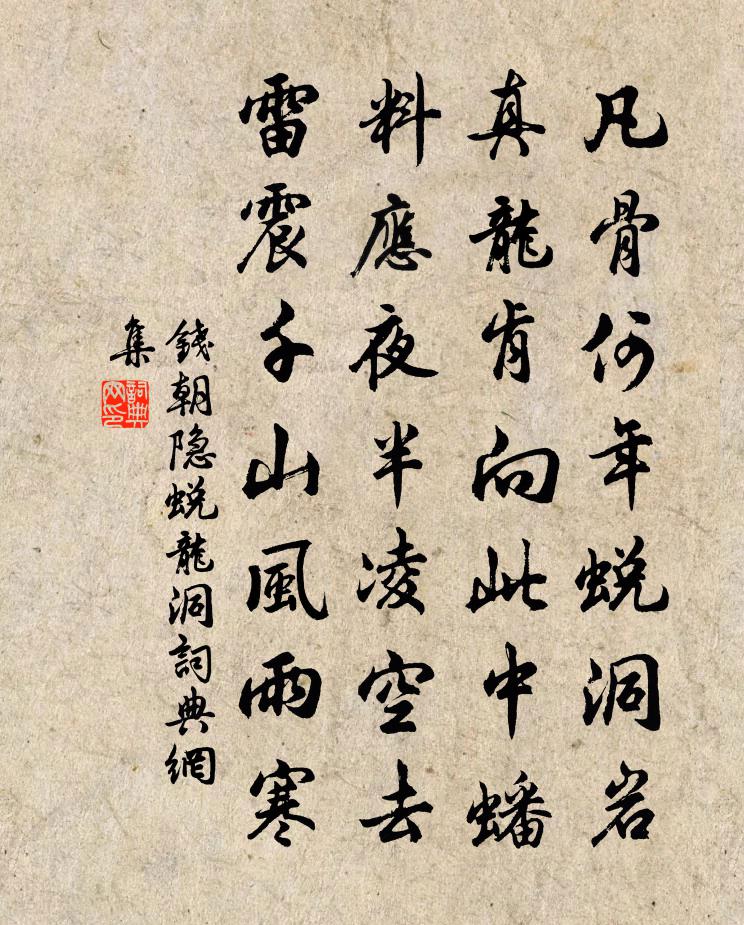 凡骨何年蜕洞岩
真龍肯向此中蟠
料應夜半凌空去
雷震千山風雨寒
錢朝隐蜕龍洞詞典網
集
詞典
网印